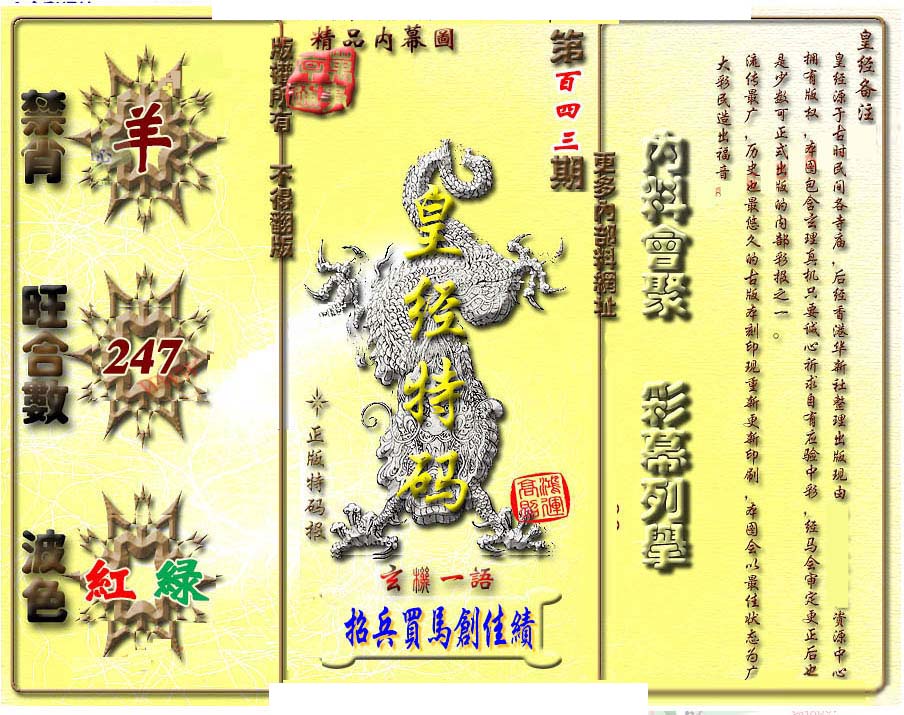 精品内幕圖
第百四三期
版權所有 不得翻版
禁肖
羊
旺合數
247
波色
紅 綠
皇经特码
正版特码报
鴻運高照
玄機一語
招兵買馬創佳績
更多內部料網址
內料會聚
彩幕列舉
皇经备注
皇经源于古时民间各寺庙,后经香港华新社整理出版现由 资源中心
拥有版权,本图包含玄理真机只要诚心祈求自有应验中彩,经马会审定更正后也
是少数可正式出版的内部彩报之一。
流传最广,历史也最悠久的古版本刻印现重新更新印刷,本图会以最佳状态为广
大彩民造出福音